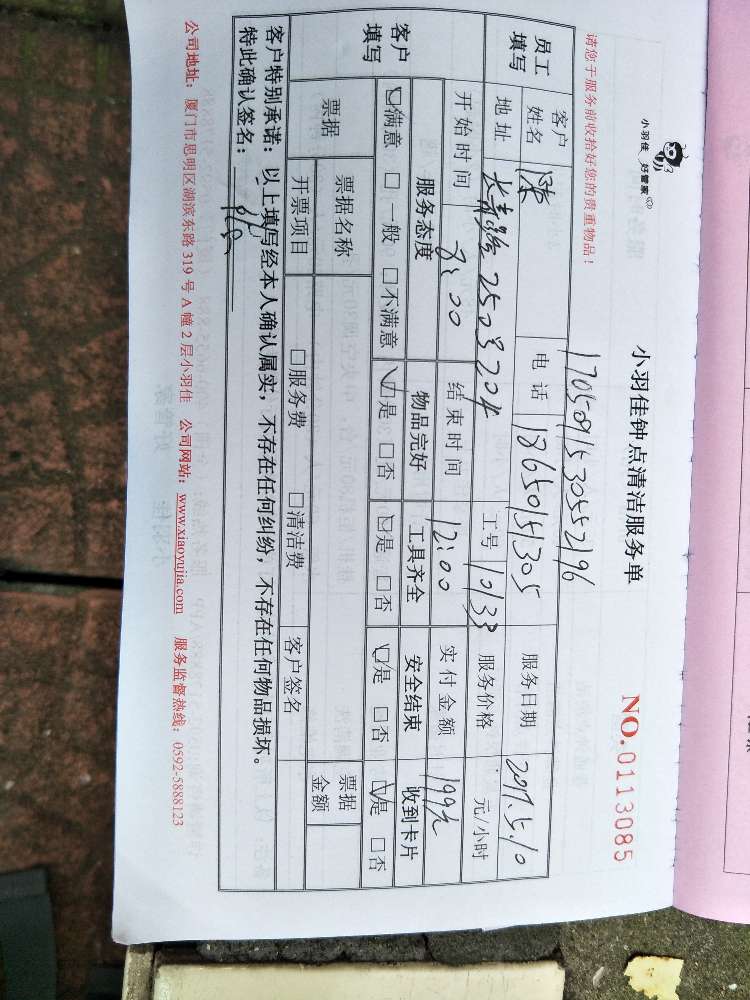 小羽佳 好管家
小羽佳钟点清洁服务单
NO.0113085
请您于服务前收拾好您的贵重物品！
1705091530552196
员工填写 客户姓名 陈 电话 18650151305 服务日期 2017.5.10
地址 长青路250号204 工号 10133 服务价格 元/小时
开始时间 8:00 结束时间 12:00 实付金额 199元
客户填写 服务态度 物品完好 工具齐全 安全结束 收到卡片
☑满意 □一般 □不满意 ☑是 □否 ☑是 □否 ☑是 □否 ☑是 □否
票据 票据名称 票据金额
开票项目 □服务费 □清洁费 客户签名
客户特别承诺：以上填写经本人确认属实，不存在任何纠纷，不存在任何物品损坏。
特此确认签名：
公司地址：厦门市思明区湖滨东路319号A幢2层小羽佳 公司网站：www.xiaoyujia.com 服务监督热线：0592-5888123